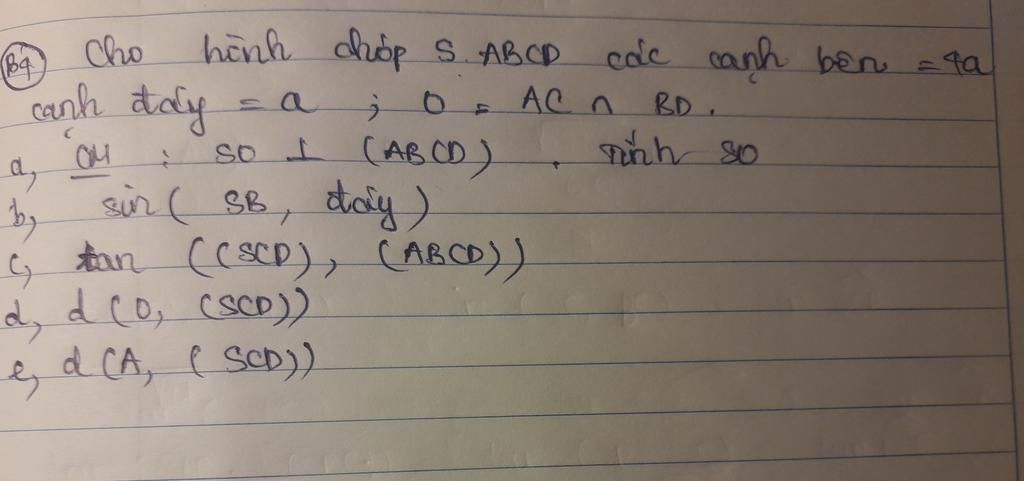 B4 Cho hình chóp S.ABCD các cạnh bên = 4a
cạnh đáy = a ; O = AC ∩ BD.
a, CM : SO ⊥ (ABCD) . Tính SO
b, sin( SB, đáy)
c, tan ((SCD), (ABCD))
d, d (O, (SCD))
e, d (A, (SCD))